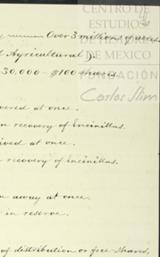 CENTRO DE
ESTUDIOS
DE HISTORIA
DE MEXICO
Carlos Slim
Over 3 millions of acres
Agricultural
30,000 $100 shares
at once.
recovery of Encinillas.
at once.
recovery of Encinillas.
away at once.
in reserve.
of distribution or free shares,